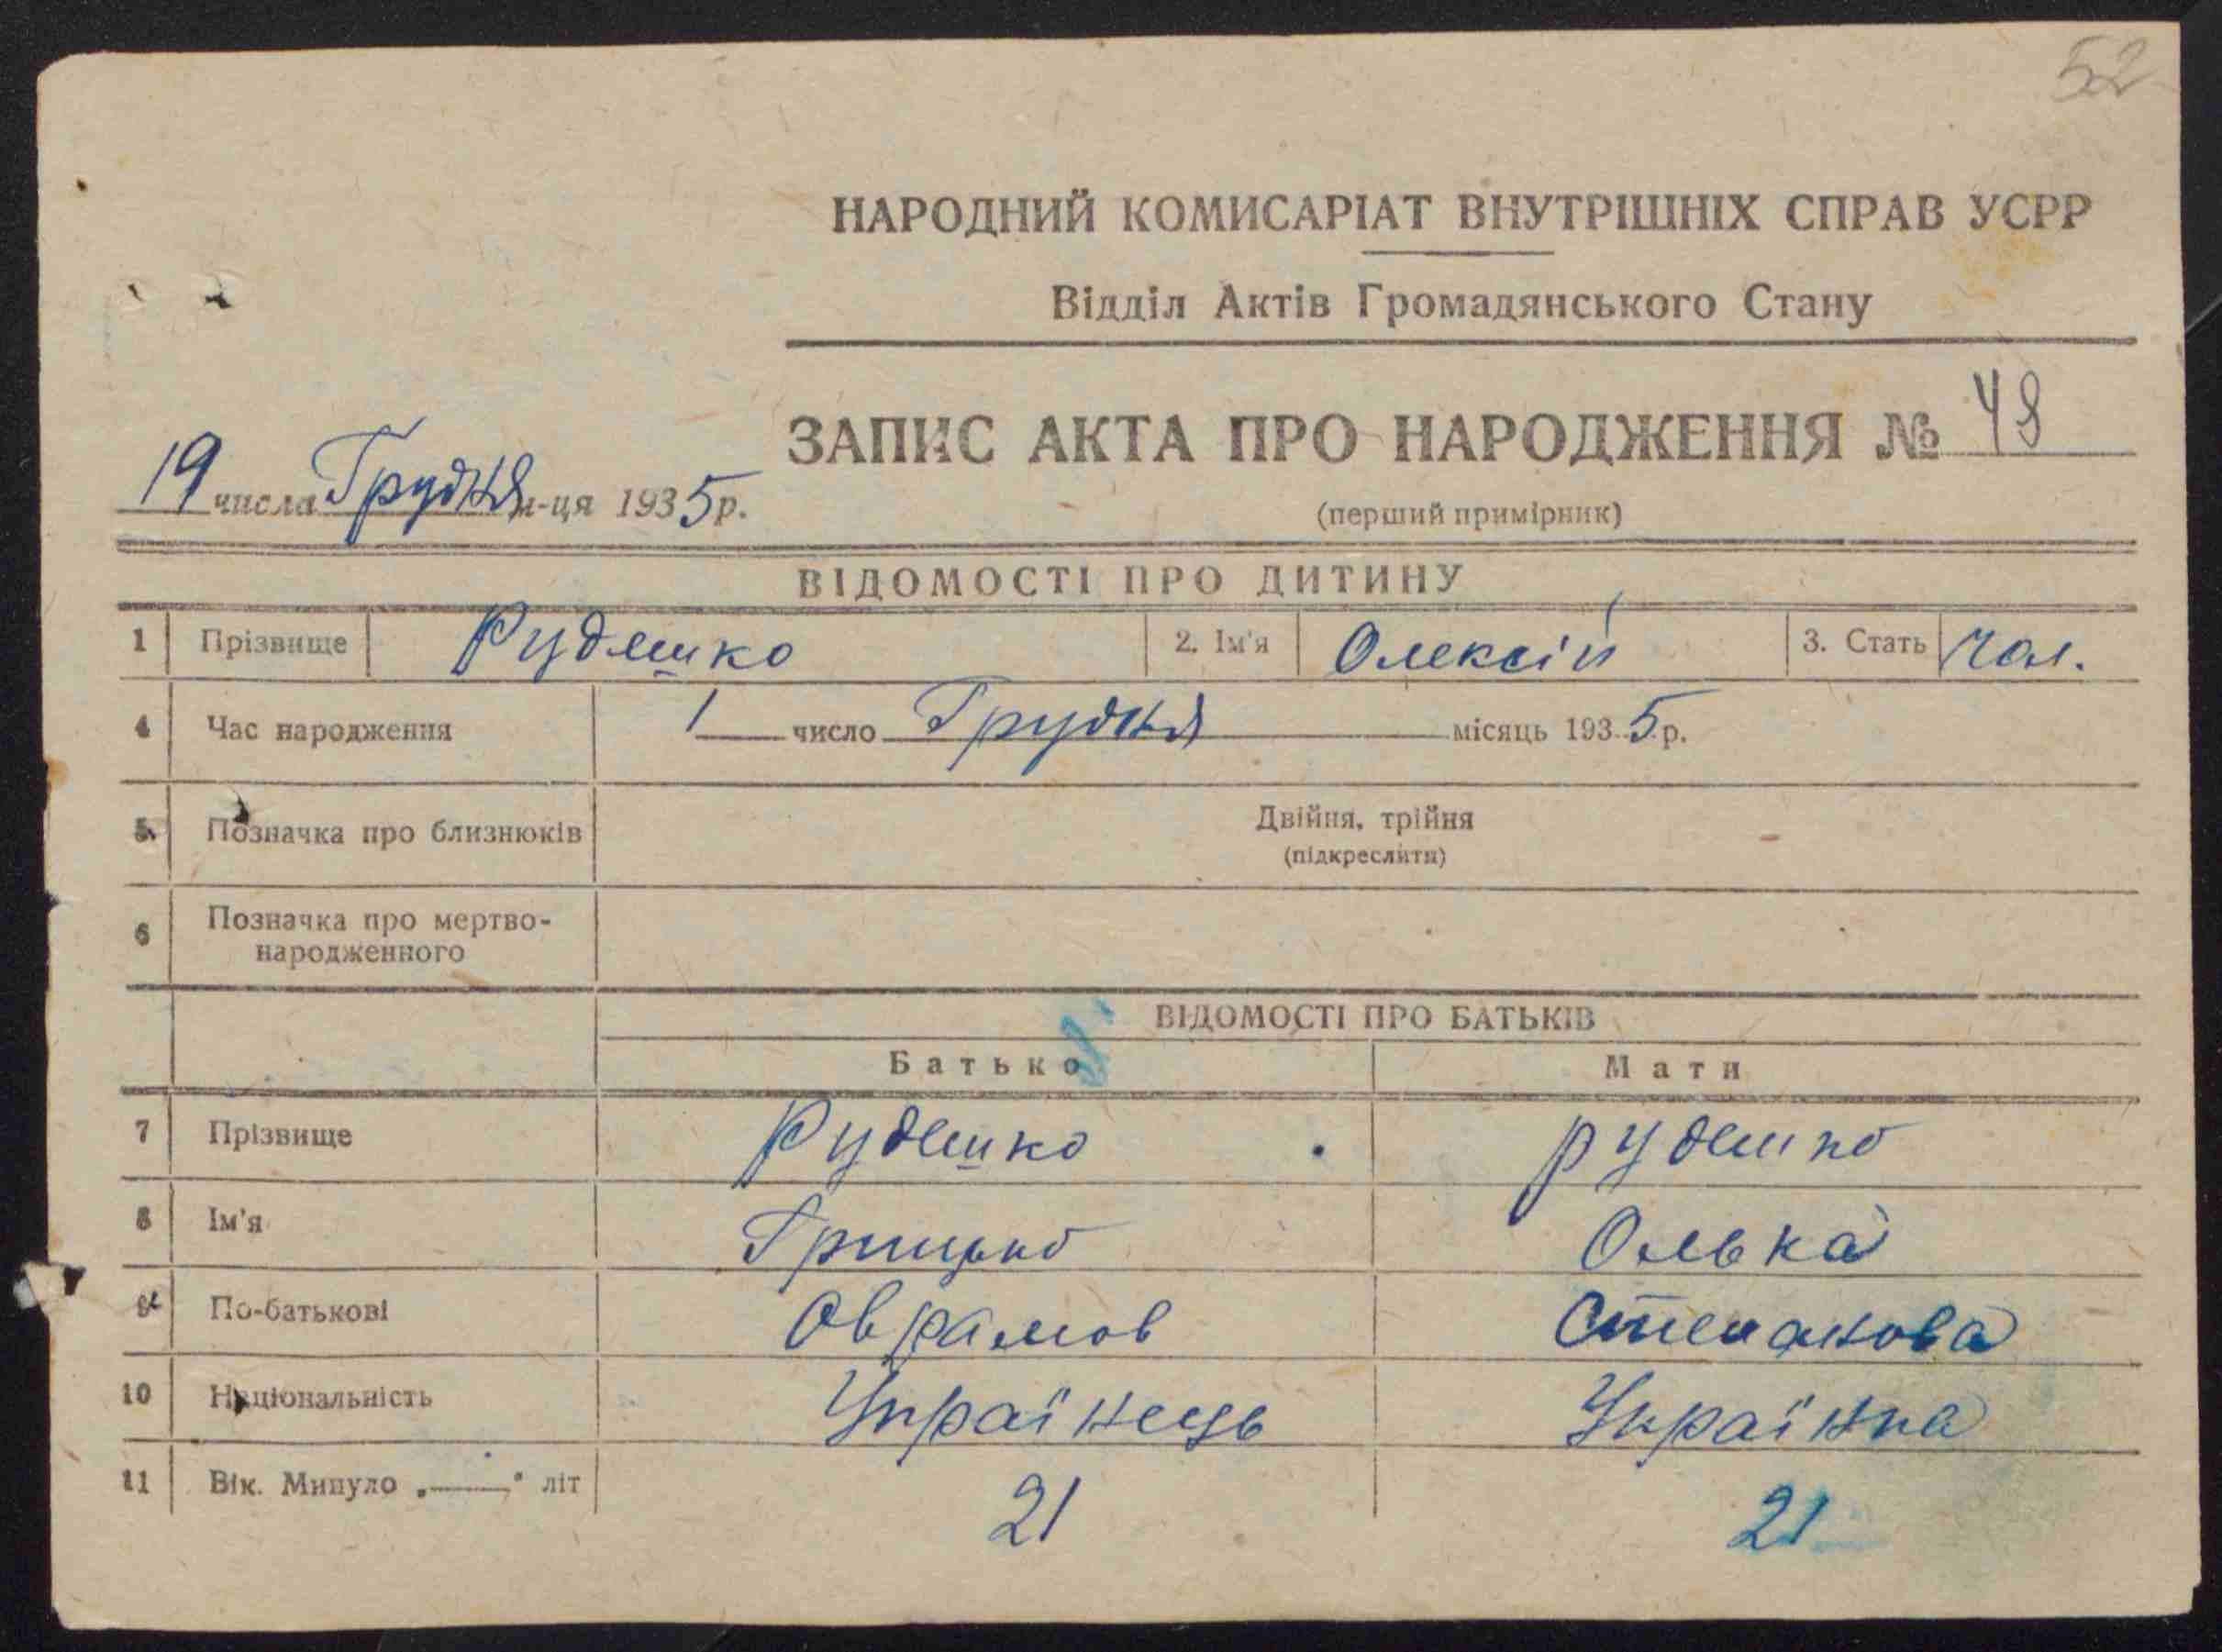 52
НАРОДНИЙ КОМИСАРІАТ ВНУТРІШНІХ СПРАВ УСРР
Відділ Актів Громадянського Стану
ЗАПИС АКТА ПРО НАРОДЖЕННЯ № 48
19 числа Грудня м-ця 1935 р.
(перший примірник)
ВІДОМОСТІ ПРО ДИТИНУ
1 Прізвище Рудешко 2. Ім'я Олексій 3. Стать чол.
4 Час народження 1 число Грудня місяць 1935 р.
5 Позначка про близнюків Двійня, трійня
(підкреслити)
6 Позначка про мертво-
народженного
ВІДОМОСТІ ПРО БАТЬКІВ
Батько Мати
7 Прізвище Рудешко Рудешко
8 Ім'я Грицько Олька
9 По-батькові Оврамов Степанова
10 Національність Українець Українка
11 Вік. Минуло „ " літ 21 21